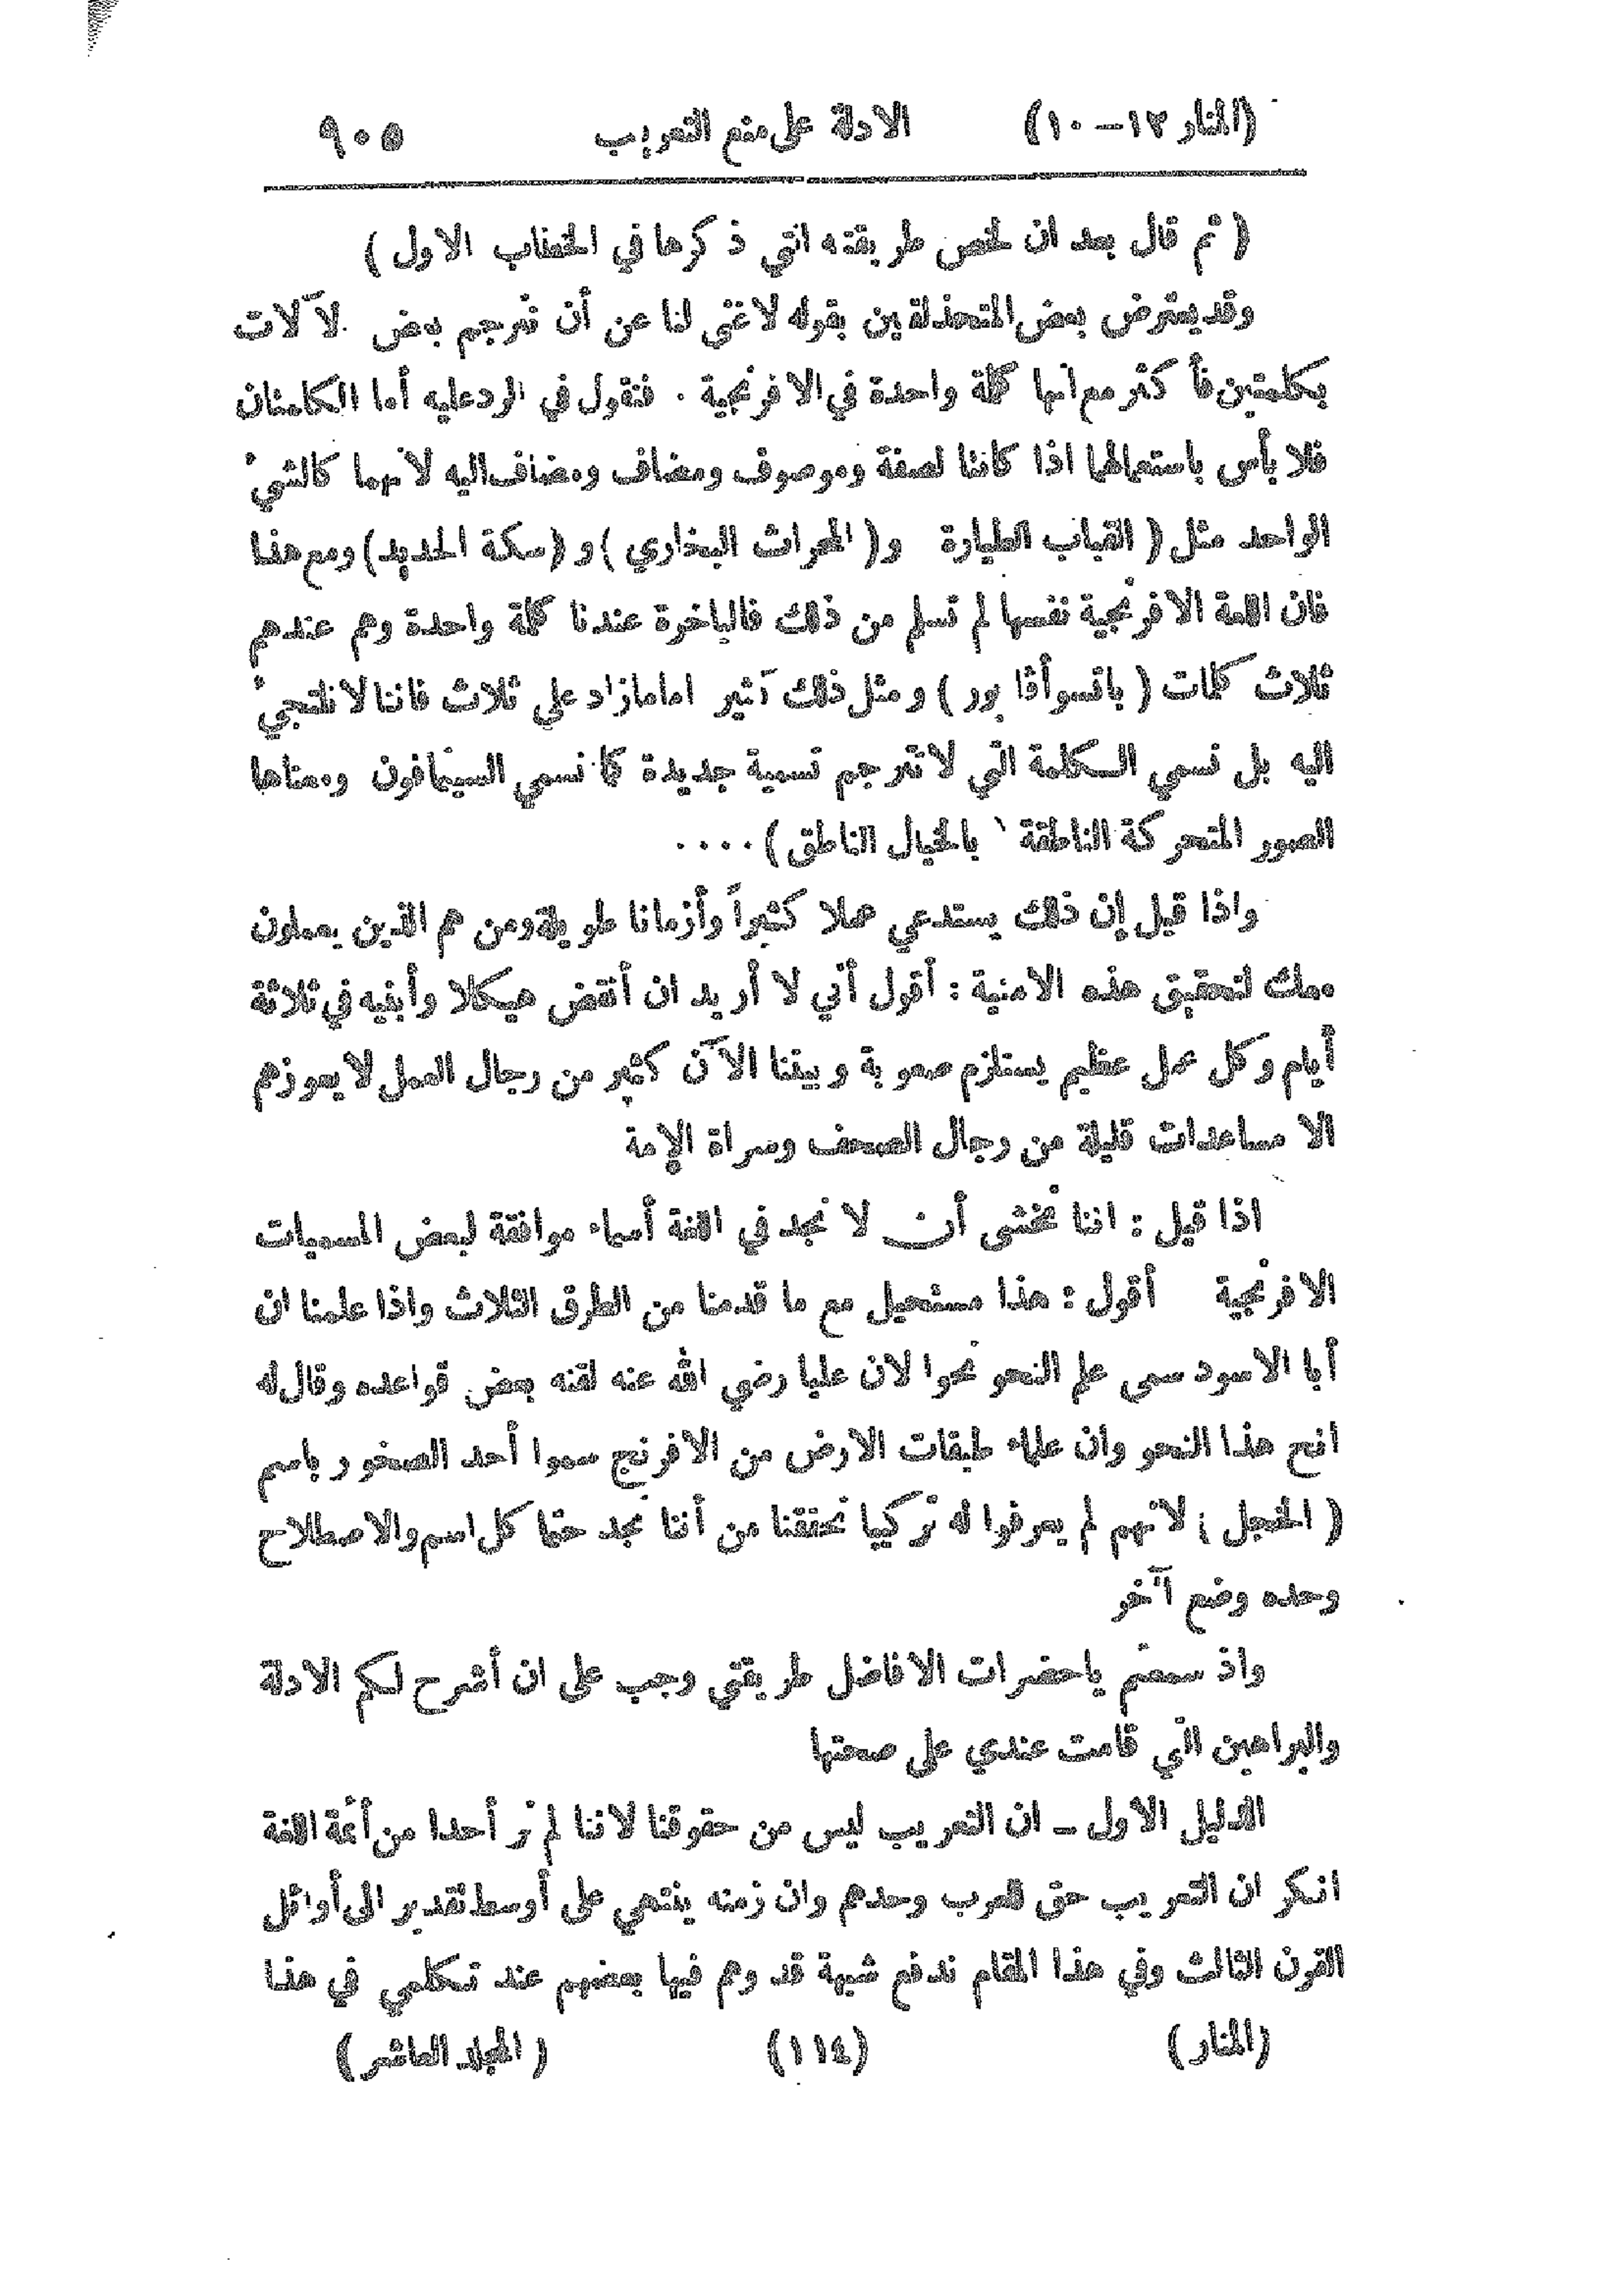 (المنار ١٢–١٠) الادلة على منع التعريب ٩٠٥
( ثم قال بعد ان لخص طريقته التي ذكرها في الخطاب الاول )
وقد يعترض بعض المتحذلقين بقوله لا غنى لنا عن أن نترجم بعض الآلات
بكلمتين فأكثر مع أنها كلمة واحدة في الافرنجية . فنقول في الرد عليه أما الكلمتان
فلا بأس باستعمالها اذا كانتا لصفة وموصوف ومضاف ومضاف اليه لانهما كالشيء
الواحد مثل ( القباب الطيارة و( المحراث البخاري ) و (سكة الحديد) ومع هذا
فان اللغة الافرنجية نفسها لم تسلم من ذلك فالباخرة عندنا كلمة واحدة وهم عندهم
ثلاث كلمات ( باتسو أڤا پور ) ومثل ذلك كثير اما مازاد على ثلاث فاننا لا نلتجيء
اليه بل نسمي الكلمة التي لا تترجم تسمية جديدة كما نسمي السينمافون ومعناها
الصور المتحركة الناطقة ( بالخيال الناطق ) ....
واذا قيل إن ذلك يستدعي عملا كثيراً وأزمانا طويلة ومن هم الذين يعملون
معك لتحقيق هذه الامنية : أقول أني لا أريد ان أنقض هيكلا وأبنيه في ثلاثة
أيام وكل عمل عظيم يستلزم صعوبة وبيننا الآن كثير من رجال العمل لا يعوزهم
الا مساعدات قليلة من رجال الصحف وسراة الامة
اذا قيل : اننا نخشى أن لا نجد في اللغة أسماء موافقة لبعض المسميات
الافرنجية أقول : هذا مستحيل مع ما قدمنا من الطرق الثلاث واذا علمنا ان
أبا الاسود سمى علم النحو نحوا لان عليا رضي الله عنه لقنه بعض قواعده وقال له
انح هذا النحو وان علماء طبقات الارض من الافرنج سموا أحد الصخور باسم
( الخجل ) لانهم لم يعرفوا له تركيبا تحققنا من أننا نجد حتما كل اسم والاصطلاح
وحده وضع آخر
واذ سمعتم يا حضرات الافاضل طريقتي وجب على ان أشرح لكم الادلة
والبراهين التي قامت عندي على صحتها
الدليل الاول ــ ان التعريب ليس من حقوقنا لاننا لم نر أحدا من أئمة اللغة
انكر ان التعريب حق للعرب وحدهم وان زمنه ينتهي على أوسط تقدير الى أوائل
القرن الثالث وفي هذا المقام ندفع شبهة قد وهم فيها بعضهم عند تكلمي في هذا
(المنار) (١١٤) ( المجلد العاشر )